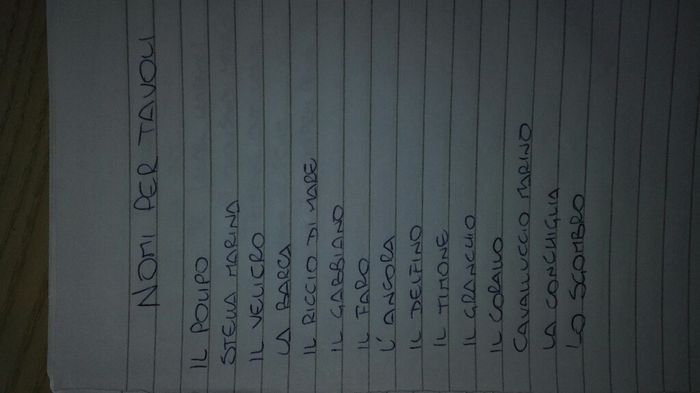 NOMI PER TAVOLI
IL POLIPO
STELLA MARINA
IL VELIERO
LA BARCA
IL RICCIO DI MARE
IL GABBIANO
IL FARO
L'ANCORA
IL DELFINO
IL TIMONE
IL GRANCHIO
IL CORALLO
CAVALLUCCIO MARINO
LA CONCHIGLIA
LO SGOMBRO